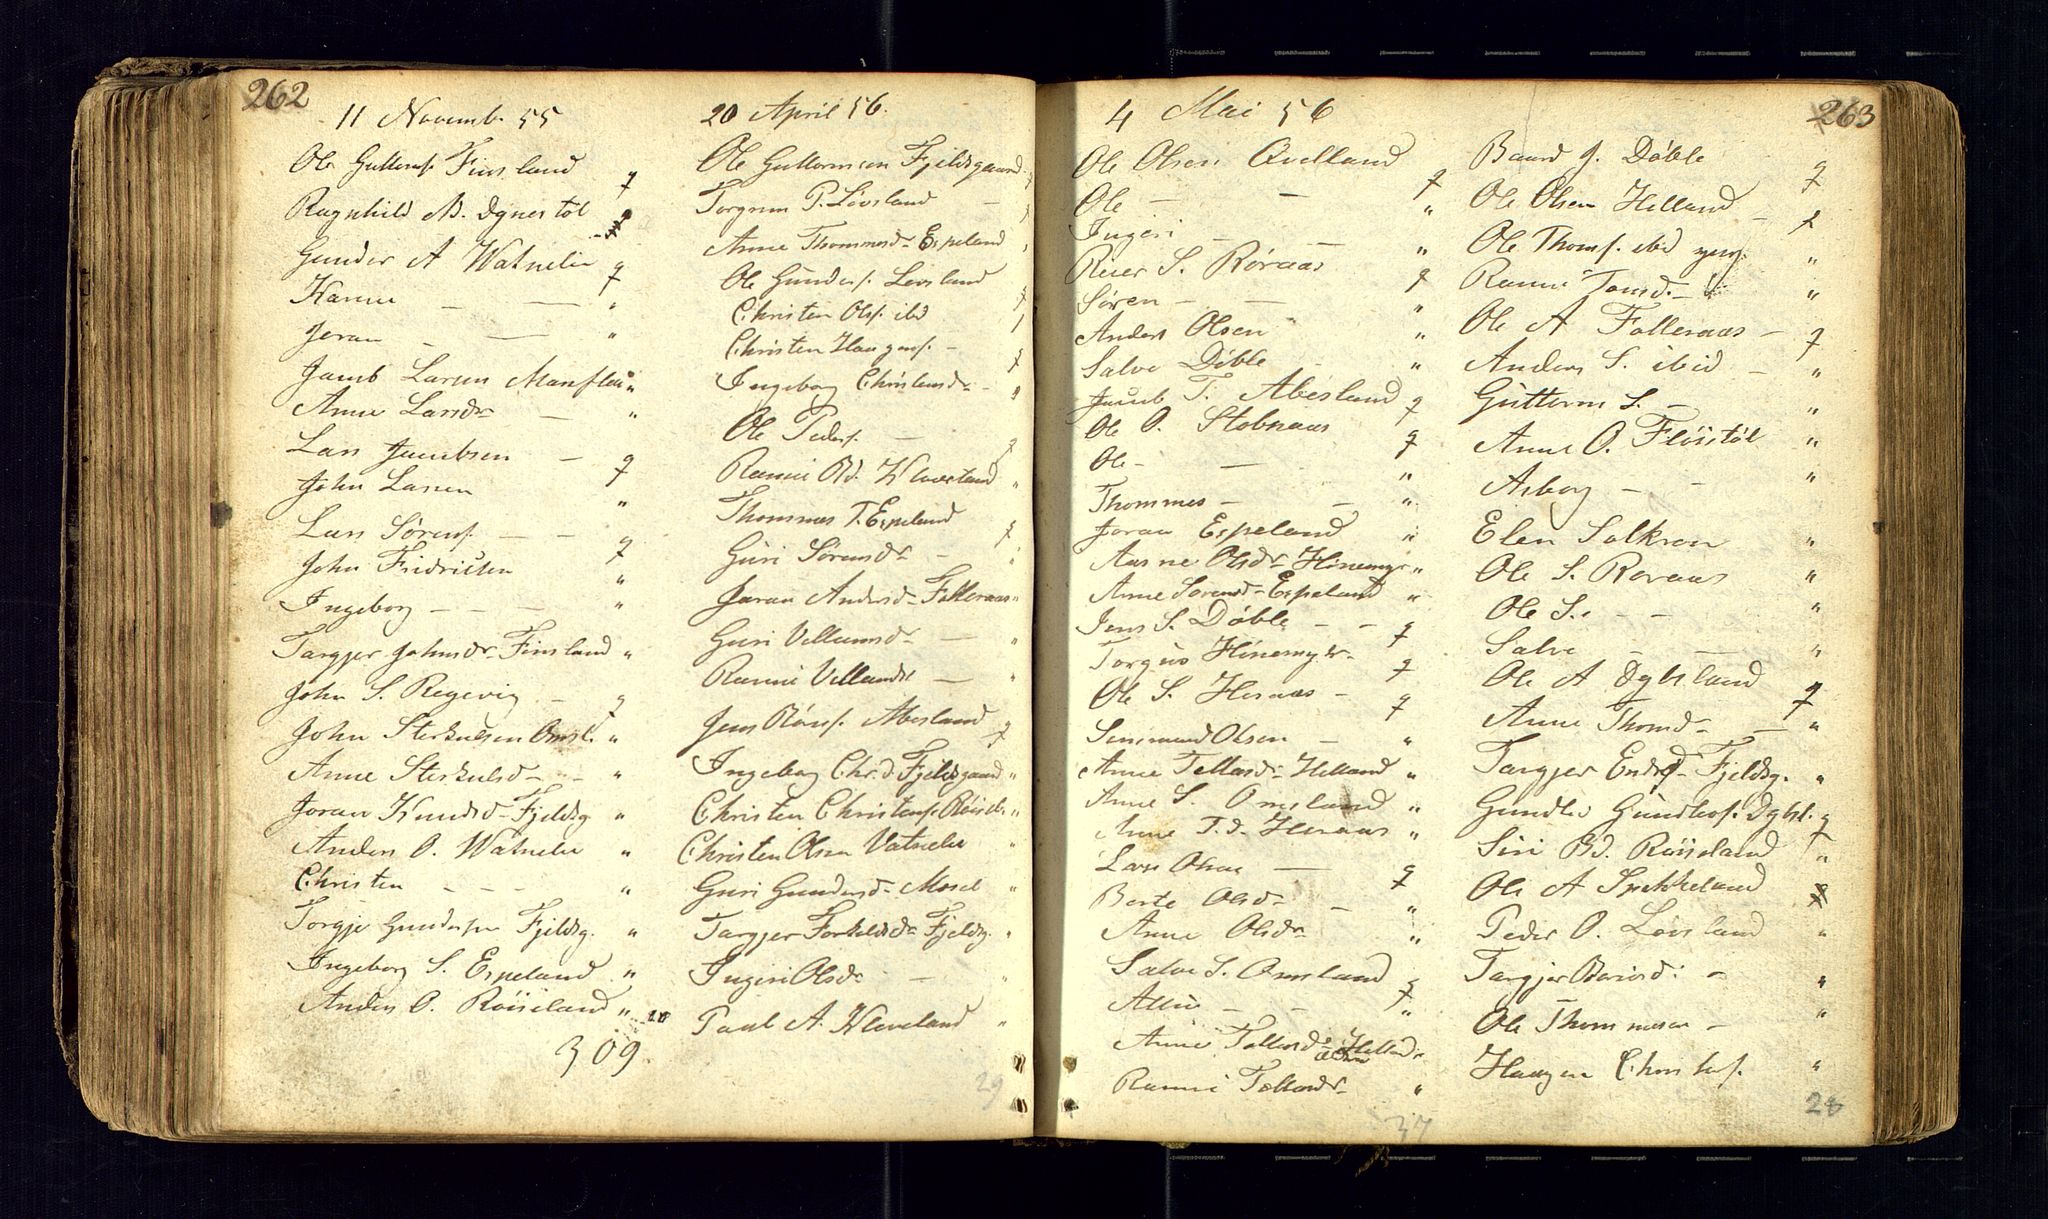 262
11 Novemb. 55
Ole Guttormf. Finsland q
Ragnhild B. Dynestøl
Gunder A Watnelie q
Hanne — — "
Joran — — "
Jacob Larsen "
Anne Larsdr — "
Lars Jacobsen — q
John Larsen "
Lars Sørensf. — — q
John Fridriksen "
Ingeborg — — — "
Targjer Johnsdr Finsland "
John S. Regevig — q
John Sterkulsen Omsl. "
Anne Sterkulsd — — "
Joran Knudsd Fjeldsg "
Anders O. Watnelie "
Christen — — — "
Torgje Gundersen Fjeldsg. "
Ingeborg S. Espeland "
Anders O. Røiseland "
309
20 April 56.
Ole Guttormsen Fjeldsgaard
Torgrim P. Løvsland —
Anne Thommesd Espeland
Ole Gundersf. Løvsland
Christen Olsf. ibd
Christen Haagensf. —
Ingeborg Christensdr —
Ole Pedersf. — q
Ranni Bd. Kleveland "
Thommes T. Espeland
Guri Sørensdr —
Joran Andersd Følleraas "
Guri Villumsdr — "
Ranni Villumsdr — "
Jens Bl Abesland q
Ingeborg Chr.d. Fjeldsgaard "
Christen Christensf. Røisl. "
Christen Olsen Vatnelie
Guri Gundersd Mosel "
Targjer Torkildsd Fjeldsg. "
Ingeri Olsdr —
Paul A. Kleveland "
29
4 Mai 56
Ole Olsen Qvelland q
Ole — — "
Ingeri — "
Reier S. Røraas q
Søren — — "
Anders Olsen "
Salve Døble — "
Jacob T. Abesland q
Ole O. Stobraas q
Ole — — "
Thommes — — "
Joran Espeland "
Aasne Olsdr Hønemyr "
Anne Sørensd Espeland "
Jens S. Døble — — q
Torgius Hønemyhr — q
Ole S. Heraas — q
Simmund Olsen — "
Anne Tellersd Helland "
Anne S. Omsland "
Anne T.d. Heraas "
Lars Olsen — q
Berte Olsdr — "
Anne Olsdr "
Salve S. Omsland q
— — "
Anne Tellersdr Helland
Ranni Tellersdr "
37
263
Baard J. Døble — q
Ole Olsen Helland — q
Ole Thomsf. ibid yng. "
Ranni Tomsd. — "
Ole A Følleraas — q
Anders S. ibid — "
Guttorm S. — "
Anne O. Fløistøl "
Asborg — — "
Elen Solkron "
Ole S. Røraas "
Ole S. — — "
Salve — — "
Ole A Dybesland q
Anne Thomd — — "
Targjer Endrsd Fjeldsg. "
Gundle Gundlesf. Dybl. q
Siri Bd. Røiseland "
Ole A Spikkeland
Peder O. Løvsland "
Targjer — "
Ole Thommesen — "
Haagen Christensf. "
28